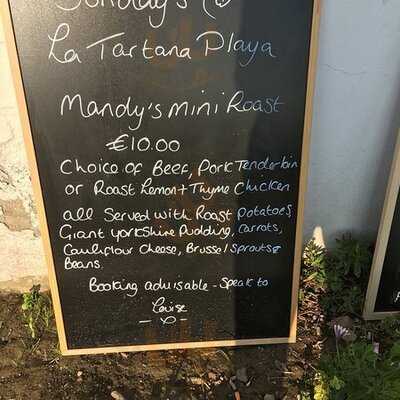 Sunday's @
La Tartana Playa
Mandy's mini Roast
€10.00
Choice of Beef, Pork Tenderloin
or Roast Lemon + Thyme Chicken
all Served with Roast Potatoes,
Giant Yorkshire Pudding, Carrots,
Cauliflour Cheese, Brussel Sprouts &
Beans.
Booking advisable - Speak to
Louise